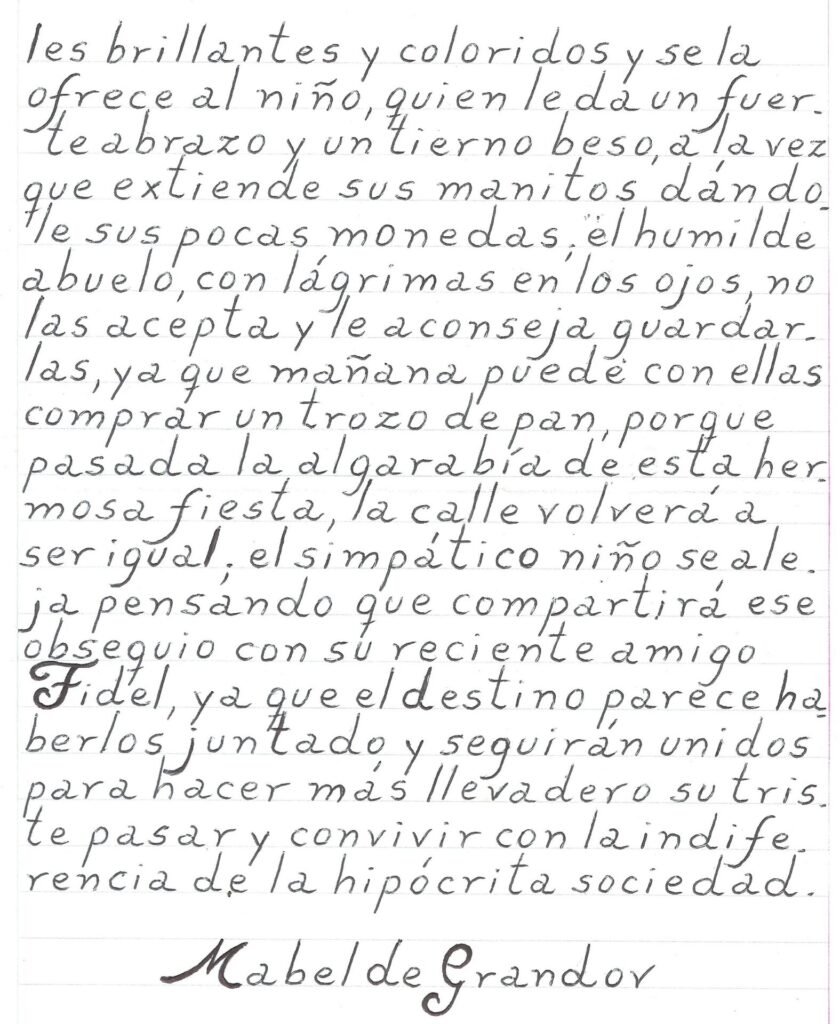 les brillantes y coloridos y se la
ofrece al niño, quien le da un fuer-
te abrazo y un tierno beso, a la vez
que extiende sus manitos dándo-
le sus pocas monedas; el humilde
abuelo, con lágrimas en los ojos, no
las acepta y le aconseja guardar-
las, ya que mañana puede con ellas
comprar un trozo de pan, porque
pasada la algarabía de esta her-
mosa fiesta, la calle volverá a
ser igual; el simpático niño se ale-
ja pensando que compartirá ese
obsequio con su reciente amigo
Fidel, ya que el destino parece ha-
berlos juntado y seguirán unidos
para hacer más llevadero su tris-
te pasar y convivir con la indife-
rencia de la hipócrita sociedad.
Mabel de Grandov